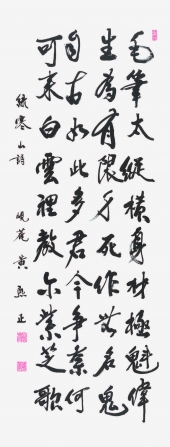 毛筆太縱橫身材極魁偉
生為有限身死作無名鬼
自古如此多君今爭奈何
可來白雲裡教尔紫芝歌
錄寒山詩 硯菴 黃熙正